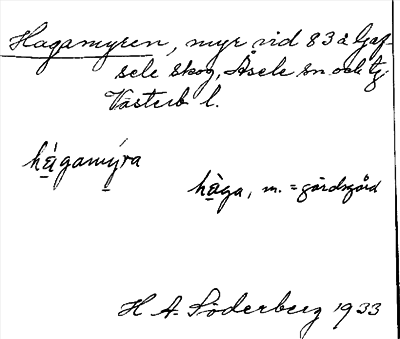 Hagamyren, myr vid 83 å Gaf-
sele skog, Åsele sn och tg.
Västerb l.
hàgamýra
hàga, m. = gärdsgård
H A. Söderberg 1933